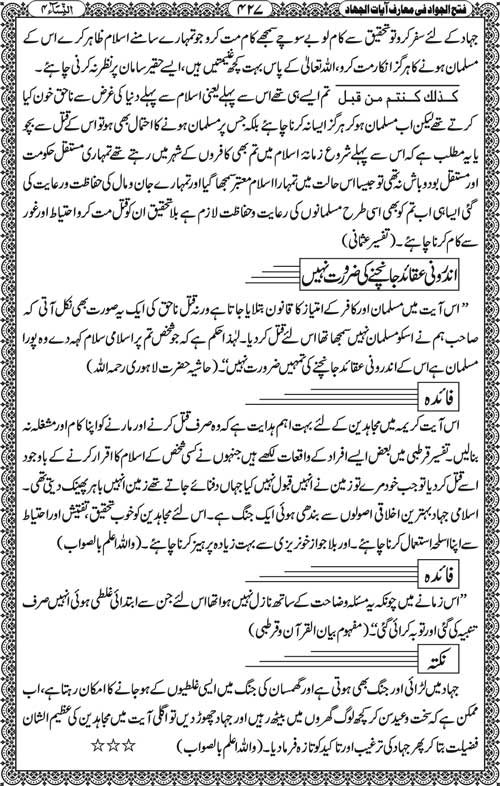 فتح الجواد فی معارف آیات الجہاد ۴۲۷ النساء ۴
جہاد کے لئے سفر کرو تو تحقیق سے کام لو بے سوچے سمجھے کام مت کرو جو تمہارے سامنے اسلام ظاہر کرے اس کے
مسلمان ہونے کا ہرگز انکار مت کرو، اللہ تعالیٰ کے پاس بہت کچھ غنیمتیں ہیں، ایسے حقیر سامان پر نظر نہ کرنی چاہئے۔
کذلک کنتم من قبل تم ایسے ہی تھے اس سے پہلے یعنی اسلام سے پہلے دنیا کی غرض سے ناحق خون کیا
کرتے تھے لیکن اب مسلمان ہو کر ہرگز ایسا نہ کرنا چاہئے بلکہ جس پر مسلمان ہونے کا احتمال بھی ہو تو اس کے قتل سے بچو
یا یہ مطلب ہے کہ اس سے پہلے شروع زمانۂ اسلام میں تم بھی کافروں کے شہر میں رہتے تھے تمہاری مستقل حکومت
اور مستقل بود و باش نہ تھی تو جیسا اس حالت میں تمہارا اسلام معتبر سمجھا گیا اور تمہارے جان و مال کی حفاظت و رعایت کی
گئی ایسا ہی اب تم کو بھی اسی طرح مسلمانوں کی رعایت و حفاظت لازم ہے بلا تحقیق ان کو قتل مت کرو احتیاط اور غور
سے کام کرنا چاہئے۔ (تفسیر عثمانی)
اندرونی عقائد جانچنے کی ضرورت نہیں
”اس آیت میں مسلمان اور کافر کے امتیاز کا قانون بتلایا جاتا ہے ورنہ قتل ناحق کی ایک یہ صورت بھی نکل آتی کہ
صاحب ہم نے اسکو مسلمان نہیں سمجھا تھا اس لئے قتل کر دیا۔ لہٰذا حکم ہے کہ جو شخص تم پر اسلامی سلام کہہ دے وہ پورا
مسلمان ہے اس کے اندرونی عقائد جانچنے کی تمہیں ضرورت نہیں“۔ (حاشیہ حضرت لاہوری رحمہ اللہ)
فائدہ
اس آیت کریمہ میں مجاہدین کے لئے بہت اہم ہدایت ہے کہ وہ صرف قتل کرنے اور مارنے کو اپنا کام اور مشغلہ نہ
بنالیں۔ تفسیر قرطبی میں بعض ایسے افراد کے واقعات لکھے ہیں جنہوں نے کسی شخص کے اسلام کا اقرار کرنے کے باوجود
اسے قتل کر دیا تو جب خود مرے تو زمین نے انہیں قبول نہیں کیا جہاں دفنائے جاتے تھے زمین انہیں باہر پھینک دیتی تھی۔
اسلامی جہاد بہترین اخلاقی اصولوں سے بندھی ہوئی ایک جنگ ہے۔ اس لئے مجاہدین کو خوب تحقیق، تفتیش اور احتیاط
سے اپنا اسلحہ استعمال کرنا چاہئے۔ اور بلا جواز خونریزی سے بہت زیادہ پرہیز کرنا چاہئے۔ (واللہ اعلم بالصواب)
فائدہ
”اس زمانے میں چونکہ یہ مسئلہ وضاحت کے ساتھ نازل نہیں ہوا تھا اس لئے جن سے ابتدائی غلطی ہوئی انہیں صرف
تنبیہ کی گئی اور توبہ کرائی گئی“۔ (مفہوم بیان القرآن و قرطبی)
نکتہ
جہاد میں لڑائی اور جنگ بھی ہوتی ہے اور گھمسان کی جنگ میں ایسی غلطیوں کے ہو جانے کا امکان رہتا ہے، اب
ممکن ہے کہ سخت وعید سن کر کچھ لوگ گھروں میں بیٹھ رہیں اور جہاد چھوڑ دیں تو اگلی آیت میں مجاہدین کی عظیم الشان
فضیلت بتا کر پھر جہاد کی ترغیب اور تاکید کو تازہ فرمادیا۔ (واللہ اعلم بالصواب) ☆☆☆